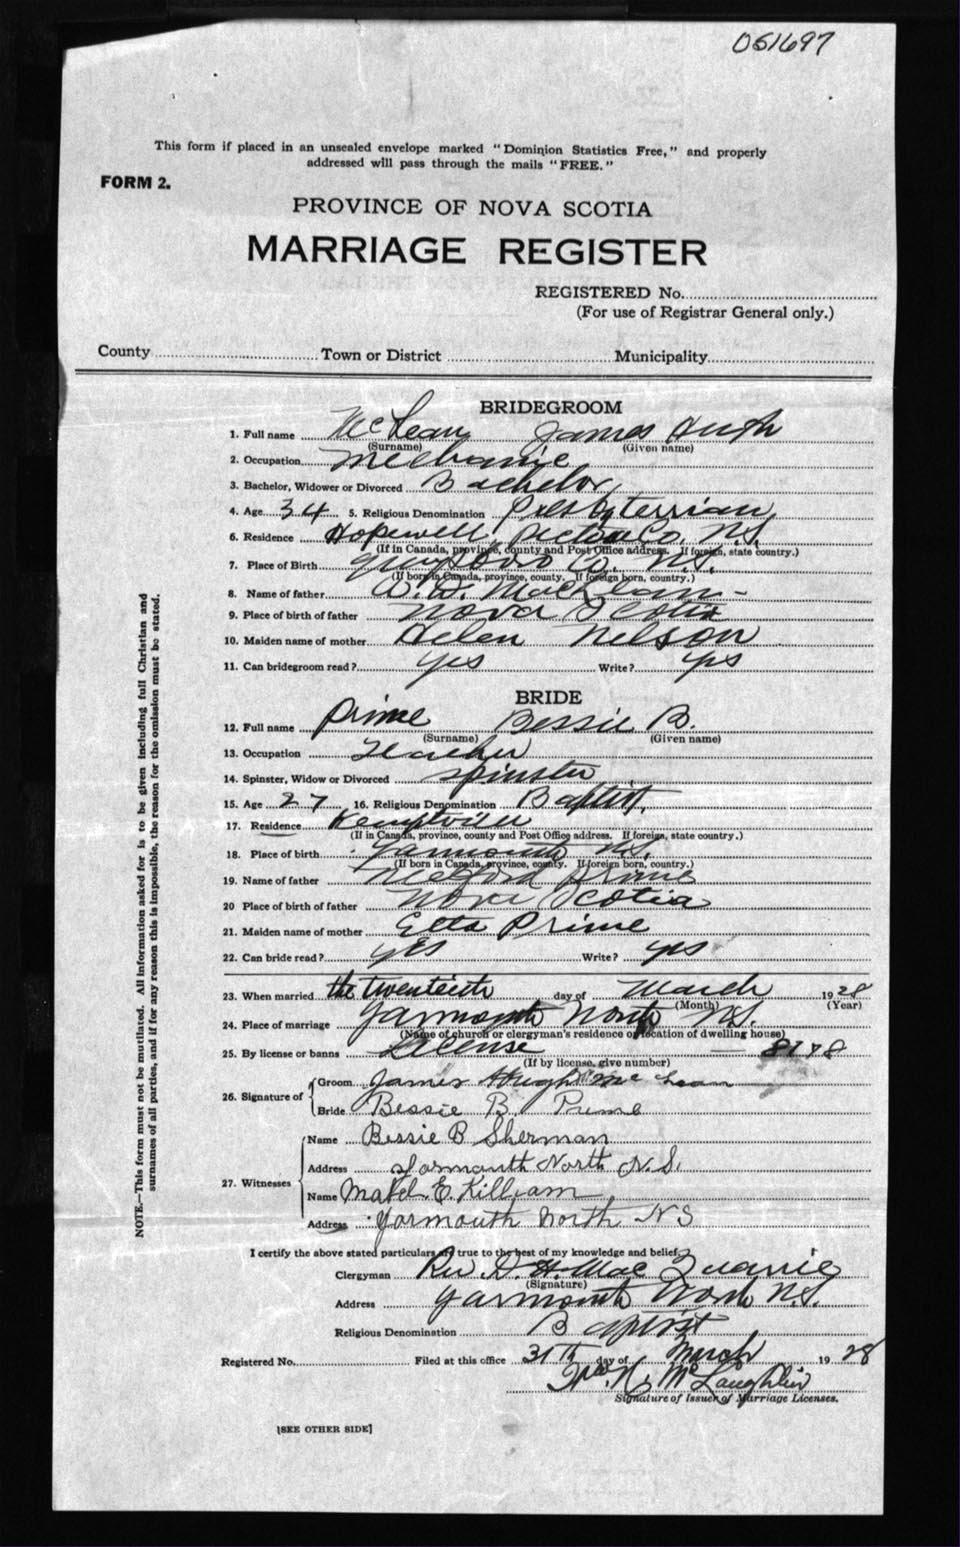 051697
This form if placed in an unsealed envelope marked "Dominion Statistics Free," and properly
addressed will pass through the mails "FREE."
FORM 2.
PROVINCE OF NOVA SCOTIA
MARRIAGE REGISTER
REGISTERED No.
(For use of Registrar General only.)
County Town or District Municipality
BRIDEGROOM
1. Full name McLean James Hugh
(Surname) (Given name)
2. Occupation Mechanic
3. Bachelor, Widower or Divorced Bachelor
4. Age 34 5. Religious Denomination Presbyterian
6. Residence Hopewell, Pictou Co. N.S.
(If in Canada, province, county and Post Office address. If foreign, state country.)
7. Place of Birth Guysboro Co. N.S.
(If born in Canada, province, county. If foreign born, country.)
8. Name of father
9. Place of birth of father Nova Scotia
10. Maiden name of mother Helen Nelson
11. Can bridegroom read? yes Write? yes
BRIDE
12. Full name Prime Bessie B.
(Surname) (Given name)
13. Occupation Teacher
14. Spinster, Widow or Divorced Spinster
15. Age 27 16. Religious Denomination Baptist.
17. Residence Kemptville
(If in Canada, province, county and Post Office address. If foreign, state country.)
18. Place of birth Yarmouth N.S.
(If born in Canada, province, county. If foreign born, country.)
19. Name of father Prime
20 Place of birth of father Nova Scotia
21. Maiden name of mother Etta Prime
22. Can bride read? yes Write? yes
23. When married the twentieth day of March 1928
(Month) (Year)
24. Place of marriage Yarmouth North N.S.
(Name of church or clergyman's residence or location of dwelling house)
25. By license or banns License
(If by license, give number)
26. Signature of Groom James Hugh McLean
Bride Bessie B. Prime
27. Witnesses Name Bessie B Sherman
Address Yarmouth North N.S.
Name Mabel E. Killam
Address Yarmouth North NS
I certify the above stated particulars are true to the best of my knowledge and belief.
Clergyman Rev D. H. MacQuarrie
(Signature)
Address Yarmouth North N.S.
Religious Denomination Baptist
Registered No. Filed at this office 31th day of March 1928
McLaughlin
Signature of Issuer of Marriage Licenses.
[SEE OTHER SIDE]
NOTE.—This form must not be mutilated. All information asked for is to be given including full Christian and
surnames of all parties, and if for any reason this is impossible, the reason for the omission must be stated.